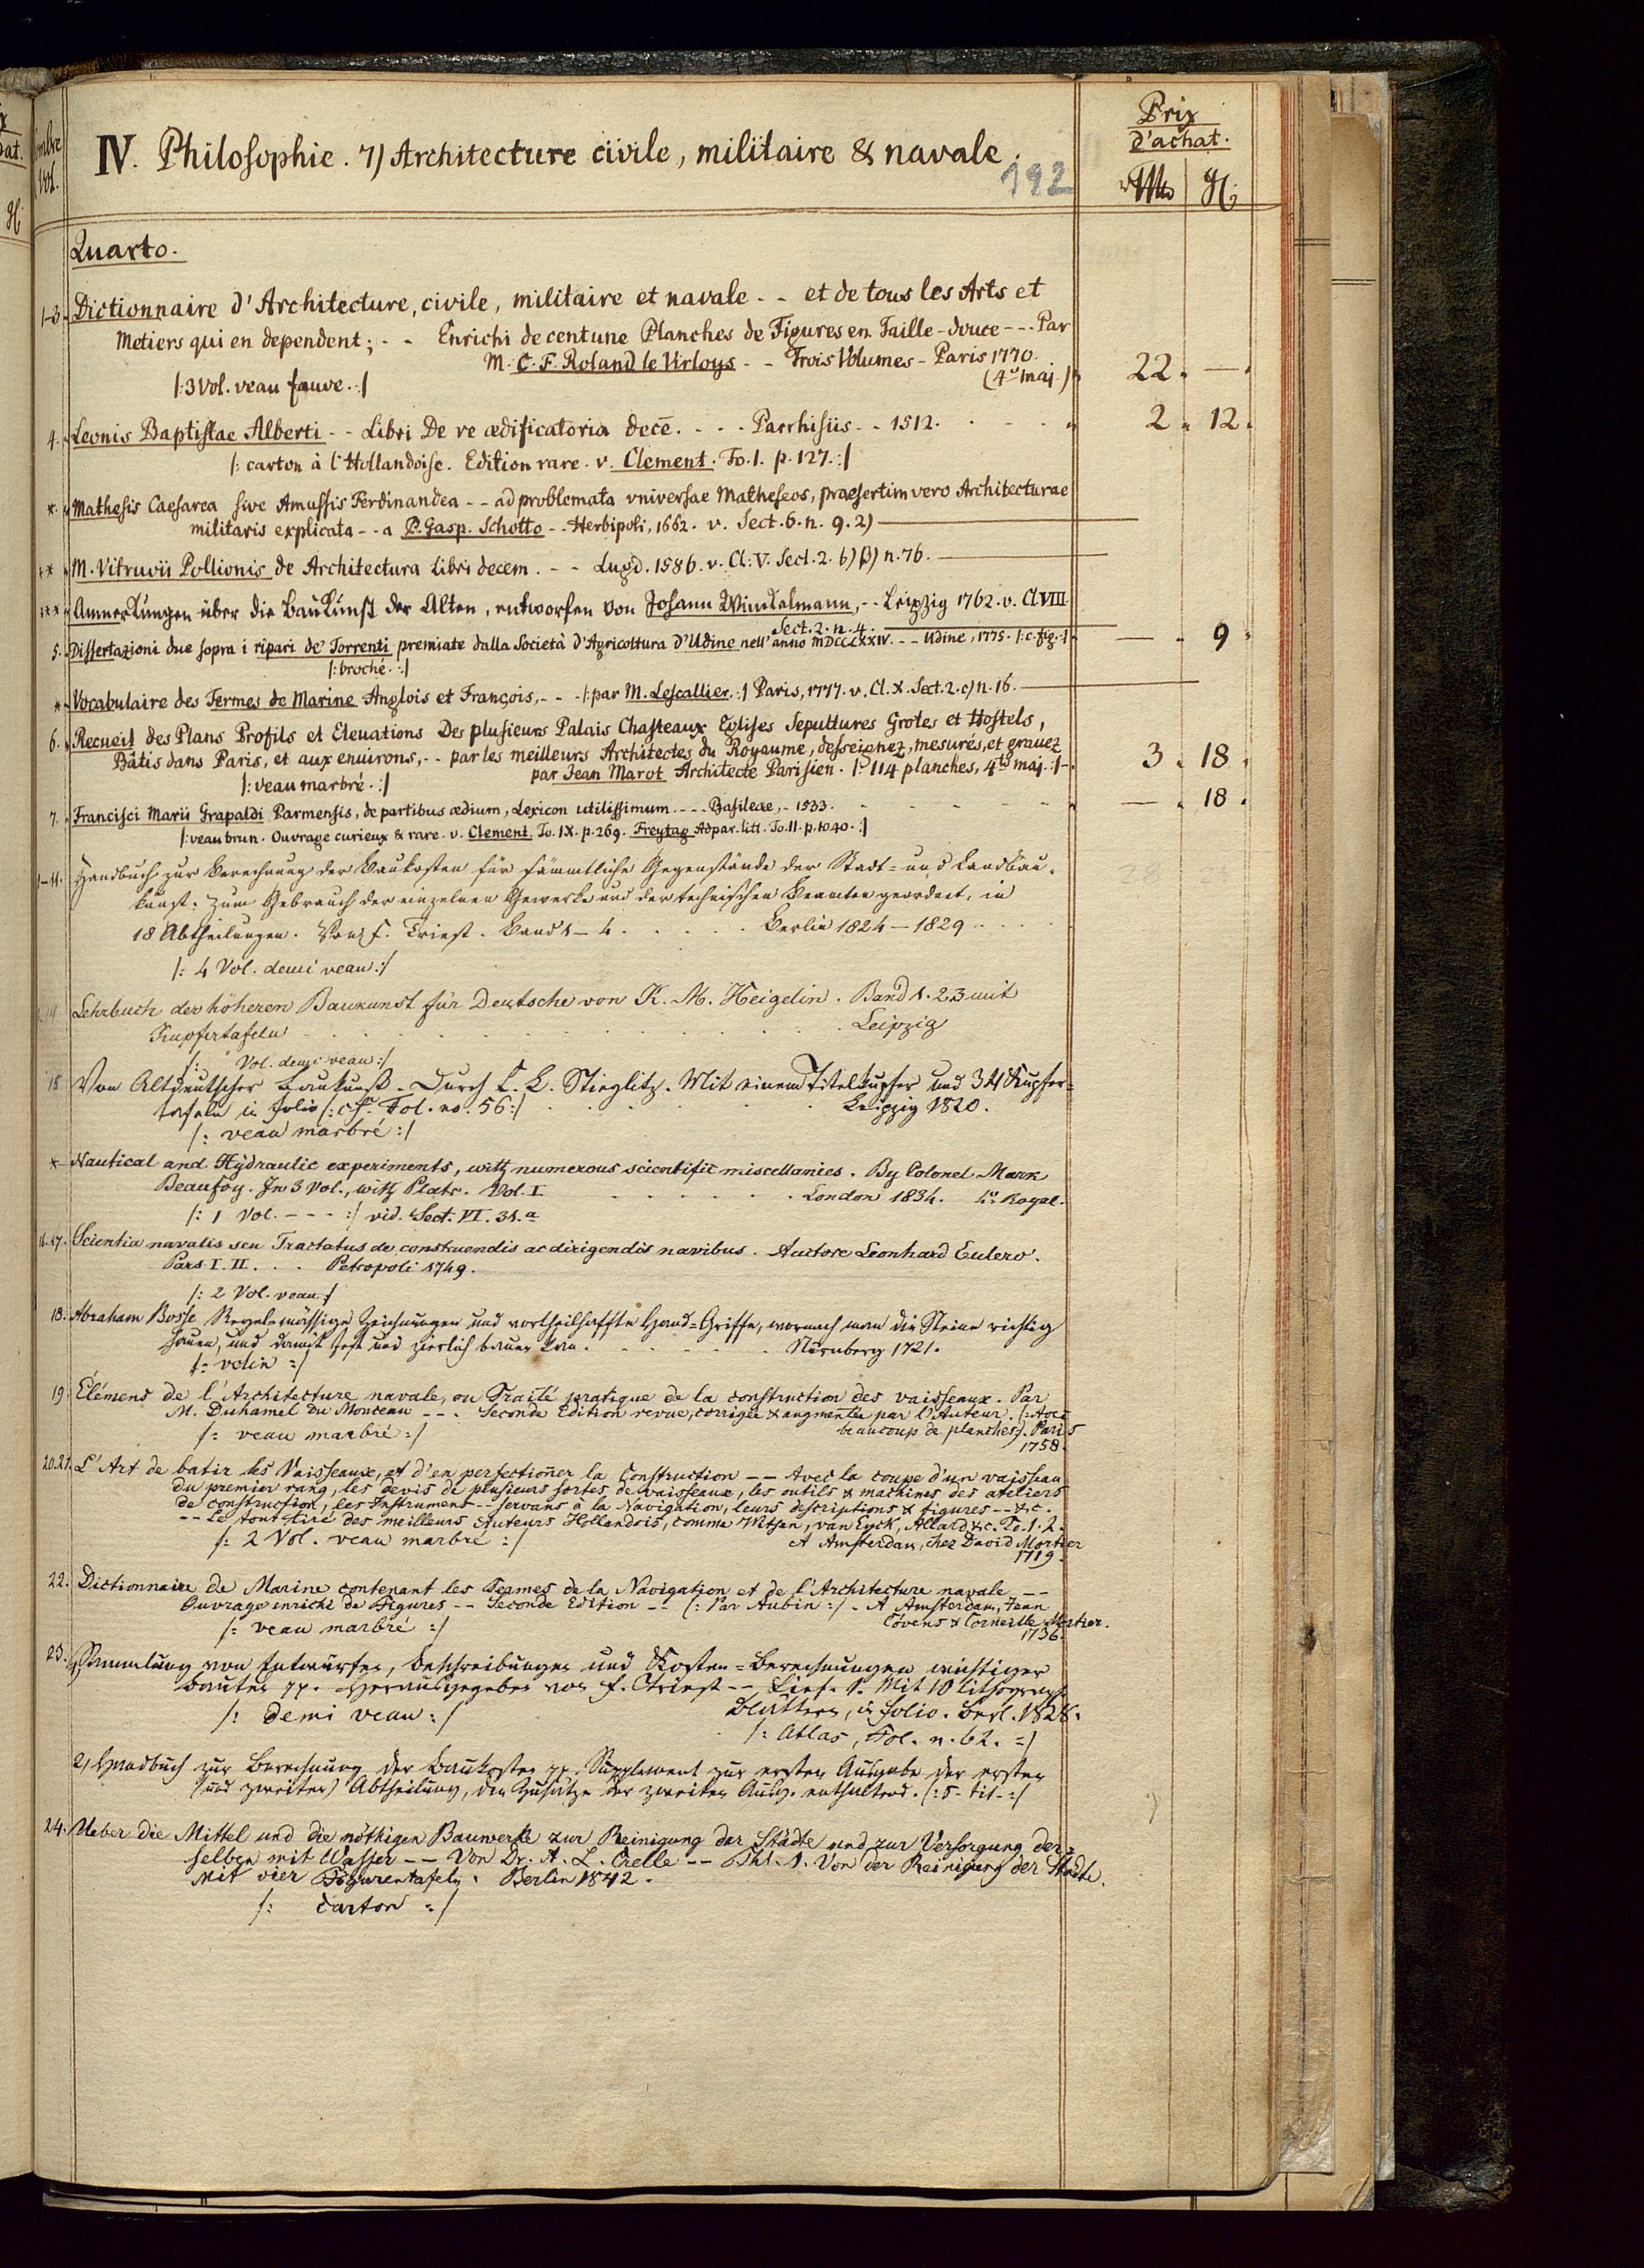 IV. Philosophie. 7) Architecture civile, militaire & navale.
192
Prix
d'achat.
Quarto.
1-3. Dictionnaire d'Architecture, civile, militaire et navale - - et de tous les Arts et
Metiers qui en dependent; - - Enrichi de cent une Planches de Figures en Taille-douce - - - Par
M. C. F. Roland le Virloys - - Trois Volumes - Paris 1770.
(4.º maj.) 22. —.
|: 3 Vol. veau fauve. :|
4. Leonis Baptistae Alberti - - Libri De re ædificatoria decē. - - - Parrhisiis - - 1512. 2. 12.
|: carton à l'Hollandoise. Edition rare. v. Clement. To. I. p. 127. :|
*. Mathesis Caesarea sive Amussis Ferdinandea - - ad problemata vniversae Matheseos, praesertim vero Architecturae
militaris explicata - - a P. Gasp. Schotto - - Herbipoli, 1662. v. Sect. 6. n. 9. 2) —
** M. Vitruvii Pollionis de Architectura Libri decem. - - Lugd. 1586. v. Cl. V. Sect. 2. b) β) n. 76. —
*** Anmerkungen über die Baukunst der Alten, entworfen von Johann Winckelmann, - - Leipzig 1762. v. Cl. VIII
Sect. 2. n. 4. —
5. Dissertazioni due sopra i ripari de' Torrenti premiate dalla Società d'Agricoltura d'Udine nell' anno MDCCLXXIV. - - Udine, 1775. |: c. fig. :| — 9.
|: broché. :|
* Vocabulaire des Termes de Marine Anglois et François, - - - |: par M. Lescallier. :| Paris, 1777. v. Cl. X. Sect. 2. c) n. 16. —
6. Recueil des Plans Profils et Eleuations Des plusieurs Palais Chasteaux Eglises Sepultures Grotes et Hostels,
Bâtis dans Paris, et aux enuirons, - - par les meilleurs Architectes du Royaume, desseignez, mesurés, et grauez
par Jean Marot Architecte Parisien. |: 114 planches, 4to maj. :| - 3. 18.
|: veau marbré. :|
7. Francisci Marii Grapaldi Parmensis, de partibus ædium, Lexicon utilissimum. - - - Basileae, - 1533. — 18.
|: veau brun. Ouvrage curieux & rare. v. Clement. To. IX. p. 269. Freytag Adpar. litt. To. II. p. 1040. :|
-11. Handbuch zur Berechnung der Baukosten für sämmtliche Gegenstände der Stadt- und Landbau-
kunst: zum Gebrauch der einzelnen Gewerke und der technischen Beamten geordnet, in
18 Abtheilungen. Von F. Triest. Band 1–4. . . . . . Berlin 1824–1829 . . .
|: 4 Vol. demi veau :|
Lehrbuch der höheren Baukunst für Deutsche von K. M. Heigelin. Band 1. 2. 3 mit
Kupfertafeln . . . . . . . . Leipzig
|: Vol. demi veau :|
15 Von Altdeutscher Baukunst. Durch C. L. Stieglitz. Mit einem Titelkupfer und 34 Kupfer-
tafeln in Folio |: cf. Fol. no. 56 :| . . . . . Leipzig 1820.
|: veau marbré :|
* Nautical and Hydraulic experiments, with numerous scientific miscellanies. By Colonel Mark
Beaufoy. In 3 Vol., with Plats. Vol. I. . . . . . . London 1834. 4º Royal.
|: 1 Vol. - - - :| vid. Sect. VI. 34.a
16.17. Scientia navalis seu Tractatus de construendis ac dirigendis navibus. Auctore Leonhard Eulero.
Pars I. II. . . . Petropoli 1749.
|: 2 Vol. veau :|
18. Abraham Bosse Regelmässige Zeichnungen und vortheilhaffte Hand-Griffe, wornach man die Steine richtig
hauen, und damit fest und zierlich bauen kan. . . . . . Nürnberg 1721.
|: velin :|
19. Élémens de l'Architecture navale, ou Traité pratique de la construction des vaisseaux. Par
M. Duhamel Du Monceau - - . Seconde Edition revue, corrigée & augmentée par l'Auteur. |: Avec
beaucoup de planches :|. Paris
1758.
|: veau marbré :|
20.21. L'Art de batir les Vaisseaux, et d'en perfectioner la Construction - - Avec la coupe d'un vaisseau
du premier rang, les devis de plusieurs sortes de vaisseaux, les outils & machines des ateliers
de construction, les Instrumens - - servans à la Navigation, leurs descriptions & figures - - &c.
- - Le tout tiré des meilleurs Auteurs Hollandois, comme Witsen, van Eyck, Allard &c. To. 1. 2.
|: 2 Vol. veau marbré :| A Amsterdam, chez David Mortier
1719.
22. Dictionnaire de Marine contenant les Termes de la Navigation et de l'Architecture navale - -
Ouvrage enrichi de Figures - - Seconde Edition - - |: Par Aubin :| - A Amsterdam, Jean
Covens & Corneille Mortier.
1736.
|: veau marbré :|
23. 1) Sammlung von Entwürfen, Beschreibungen und Kosten-Berechnungen wichtiger
Bauten pp. Herausgegeben von F. Triest - - Lief. 1. Mit 10 lithograph.
Blättern, in Folio. Berl. 1828.
|: demi veau :|
|: Atlas, Fol. n. 62. :|
2) Handbuch zur Berechnung der Baukosten pp. Supplement zur ersten Ausgabe der ersten
(und zweiten) Abtheilung, die Zusätze der zweiten Ausg. enthaltend. |: s. tit. :|
24. Ueber die Mittel und die nöthigen Bauwerke zur Reinigung der Städte und zur Versorgung der-
selben mit Wasser - - Von Dr. A. L. Crelle - - Thl. 1. Von der Reinigung der Städte.
Mit vier Figurentafeln. Berlin 1842.
|: Carton :|